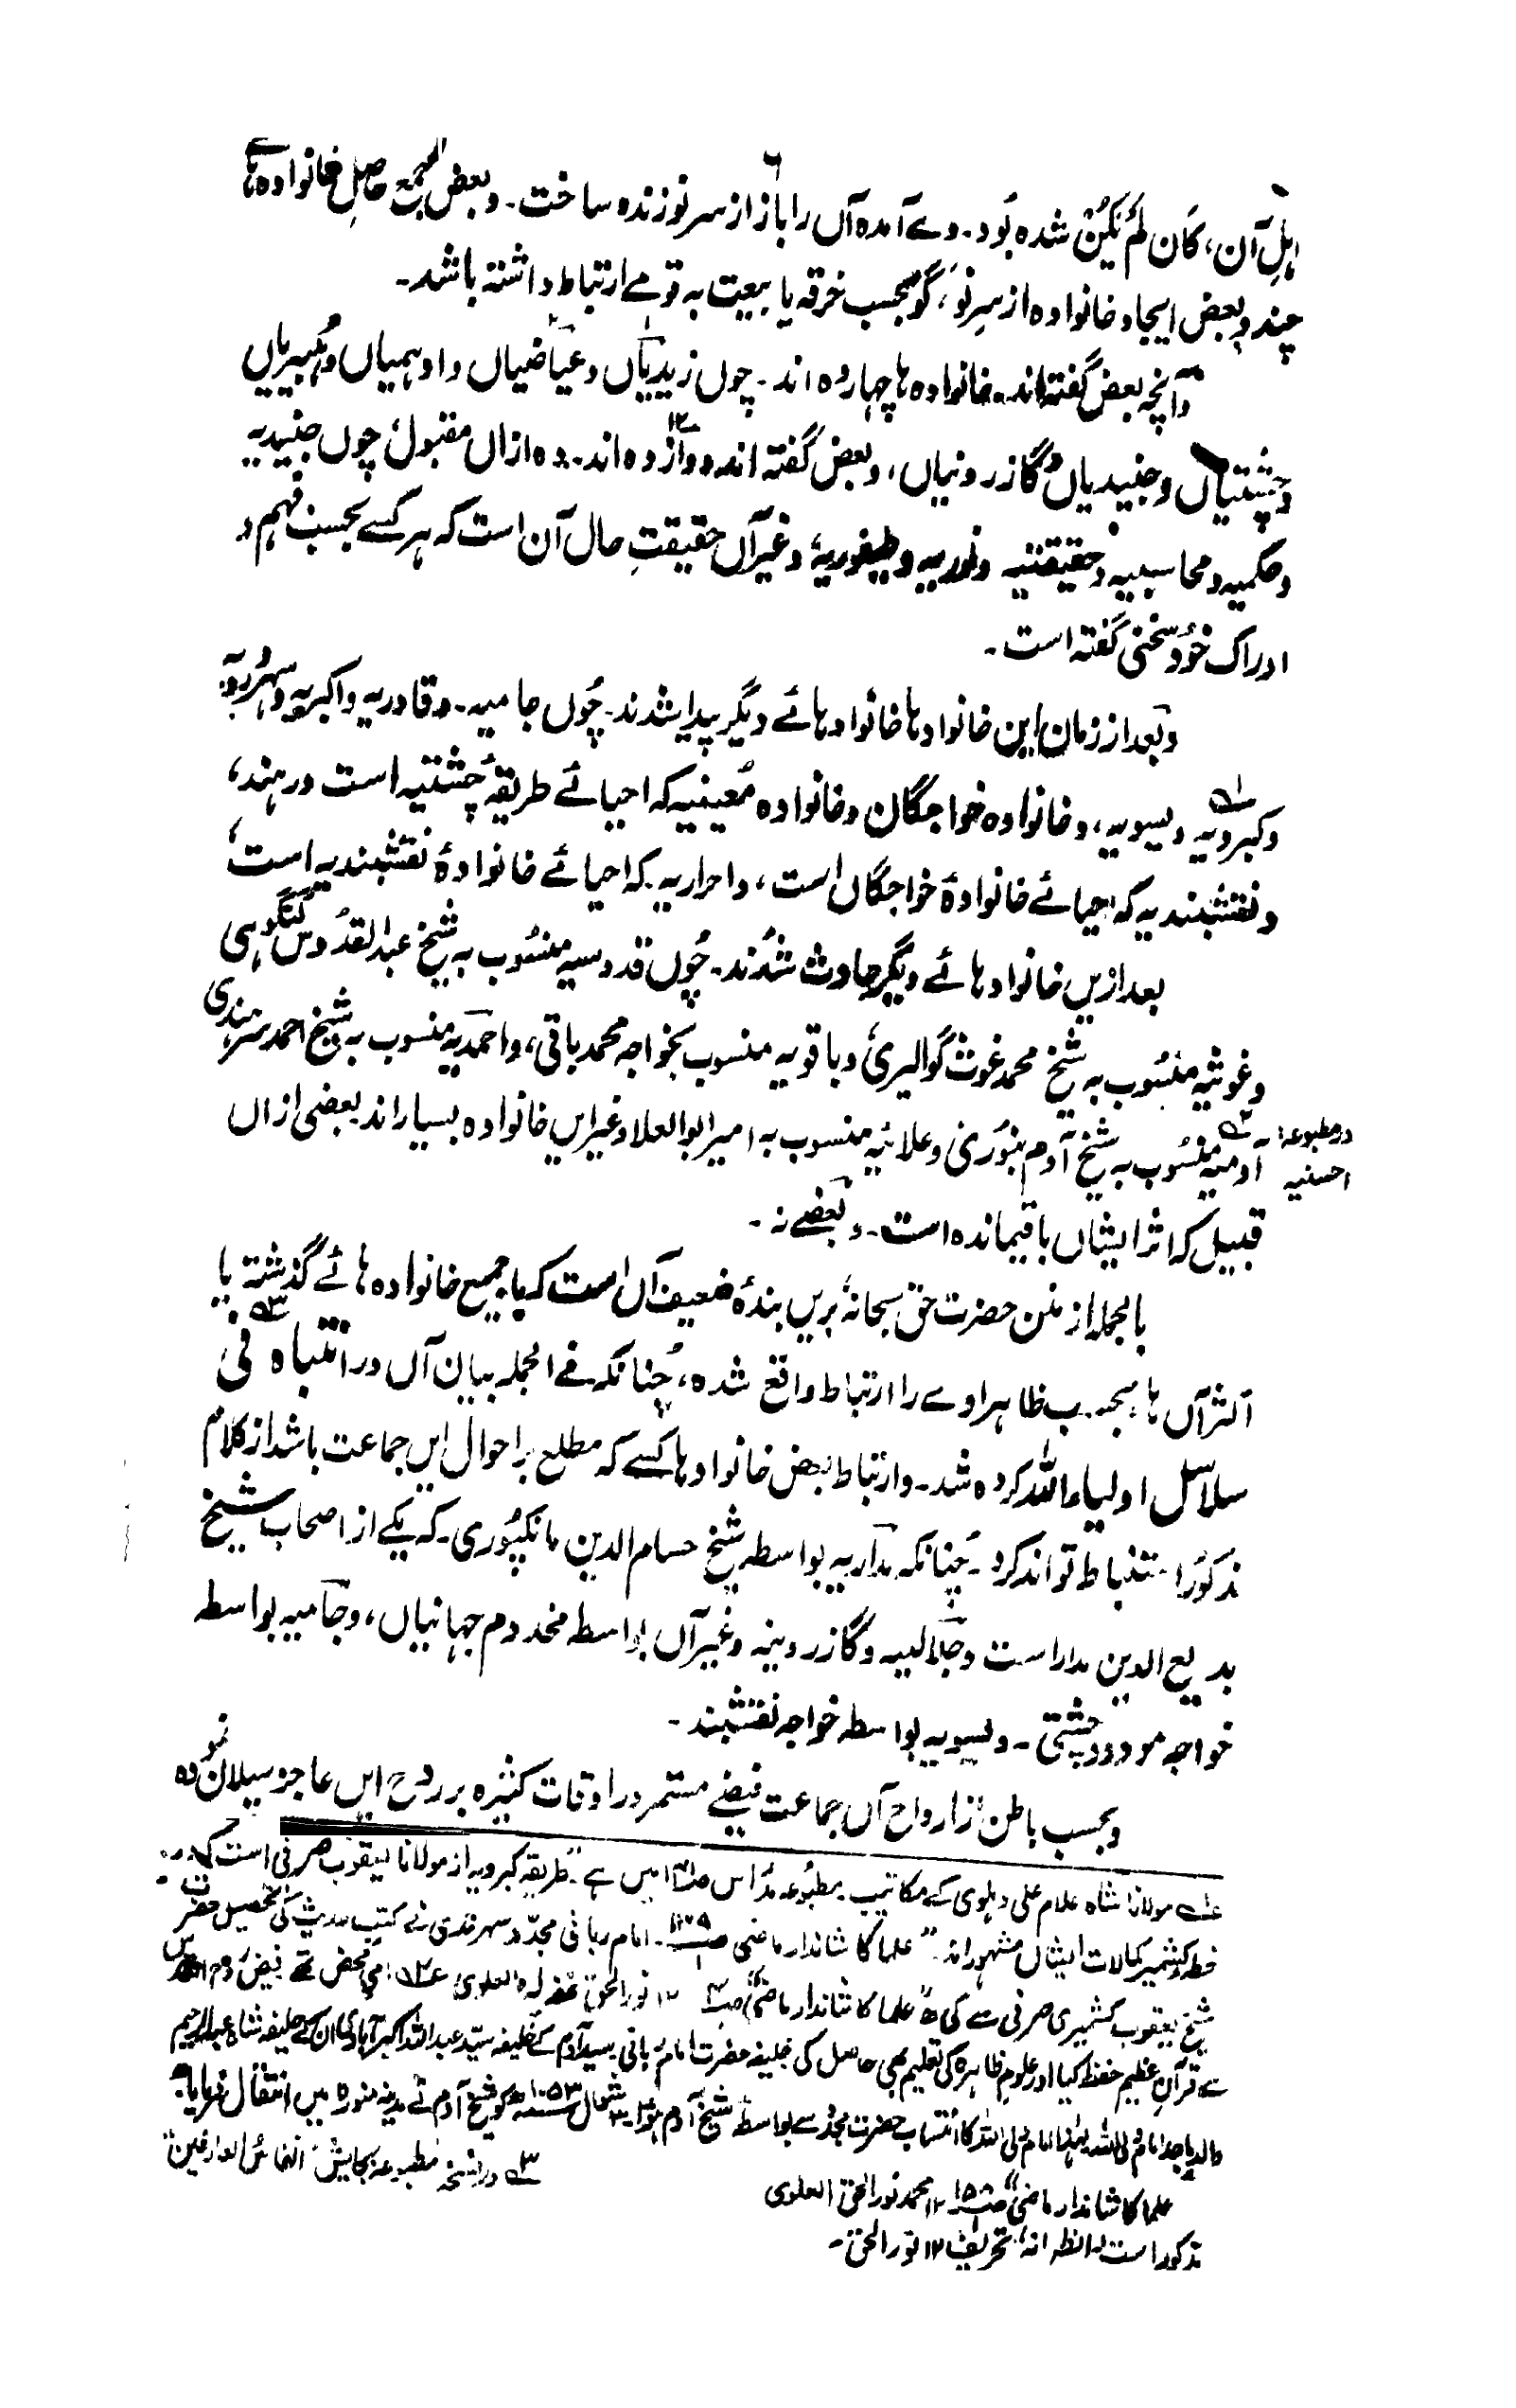 ۶
اہلِ آن، کَان لَمْ یَکُنْ شدہ بُود۔ وے آمدہ آں را باز از سرِ نو زندہ ساخت۔ و بعض بحصر حاصلِ خانوادہ ہائے
چند و بعض ایجاد خانوادہ از سرِ نَو، گو بحسب خرقہ یا بیعت بہ قومے ارتباط داشتہ باشد۔
و آنچہ بعض گفتہ اند۔ خانوادہ ہا چہاردہ اند۔ چوں زیدیاں و عیاضیاں و ادہمیاں و ہُبیریاں
و چشتیاں و جنیدیاں و گازرونیاں، و بعض گفتہ اند دوازدہ اند۔ دہ ازاں مقبول چوں جنیدیہ
و حکمیہ و محاسبیہ و حقیقتیہ و نوریہ و طیفوریہ، و غیر آں حقیقتِ حال آن است کہ ہر کسے بحسب فہم و
ادراک خُود سخنی گفتہ است۔
و بعد از زمان این خانوادہا خانوادہائے دیگر پیدا شدند۔ چُوں جامیہ۔ و قادریہ و اکبریہ و سہروردیہ
و کبرویہ و یسویہ، و خانوادہ خواجگان و خانوادہ مُعینیہ کہ احیائے طریقہ چشتیہ است در ہند،
و نقشبندیہ کہ احیائے خانوادۂ خواجگاں است، و احراریہ کہ احیائے خانوادۂ نقشبندیہ است،
بعد ازیں خانوادہائے دیگر حادث شدند۔ چُوں قدوسیہ منسُوب بہ شیخ عبد القدُوس گنگوہی
و غوثیہ منسُوب بہ شیخ محمد غوث گوالیری، و باقویہ منسوب بخواجہ محمد باقی، و احمدیہ منسوب بہ شیخ احمد سرہندی
آدمیہ منسُوب بہ شیخ آدم بنوری و علائیہ منسوب بہ امیر ابو العلا و غیر ایں خانوادہ بسیار اند بعضی ازاں
در مطبوعہ احسنیہ
قبیل کہ اثر ایشاں باقیماندہ است۔ و بعضے نہ۔
بالجملہ از منن حضرت حق سبحانہٗ بریں بندۂ ضعیف آں است کہ با جمیع خانوادہ ہائے گذشتہ یا
اکثر آں ہا بحسب ظاہر اورے را ارتباط واقع شدہ، چنانکہ فے الجملہ بیان آں در انتباہ فی
سلاسل اولیاء اللہ کردہ شد۔ و ارتباط بعض خانوادہا کسے کہ مطلع بر احوال ایں جماعت باشد از کلام
مذکور استنباط تواند کرد۔ چنانکہ مداریہ بواسطہ شیخ حسام الدین مانکپُوری۔ کہ یکے از اصحاب شیخ
بدیع الدین مدار است و جلالیہ و گازرونیہ و غیر آں بواسطہ مخدوم جہانیاں، و جامیہ بواسطہ
خواجہ مودود چشتی۔ و یسویہ بواسطہ خواجہ نقشبند۔
و بحسب باطن از ارواح آں جماعت فیضے مستمر در اوقات کثیرہ بر روح ایں عاجز سیلان نمودہ
عہ۱ مولانا شاہ غلام علی دہلوی کے مکاتیب مطبُوعہ مدراس میں ہے "طریقہ کبرویہ از مولانا یعقوب صرفی است کہ در
خطہ کشمیر کمالات ایشاں مشہور اند۔" علما کا شاندار ماضی۔ امام ربانی مجدّد سہرندی نے کتب حدیث کی تحصیل حضرت
شیخ یعقوب کشمیری صرفی سے کی" علما کا شاندار ماضی ۱۲ نور الحق غفر لہ العلوی عہ۲ امی محض تھے فیض رُوم القدس
سے قرآنِ عظیم حفظ کیا اور علومِ ظاہرہ کی تعلیم بھی حاصل کی خلیفہ حضرت امام ربانی۔ سید آدم کے خلیفہ سیّد عبد اللہ اکبر آبادی ان کے خلیفہ شاہ عبد الرحیم
والد ماجد امام ولی اللہ لہٰذا امام ولی اللہ کا انتساب حضرت مجدد سے بواسطہ شیخ آدم ہوا۔ شوال ۱۰۵۳ھ کو شیخ آدم نے مدینہ منورہ میں انتقال فرمایا۔
علما کا شاندار ماضی ۱۲ محمد نور الحق العلوی
عہ۳ در نسخہ مطبوعہ بجایش "انفاس العارفین"
مذکور است و انظہر انہٗ تحریف ۱۲ نور الحق۔